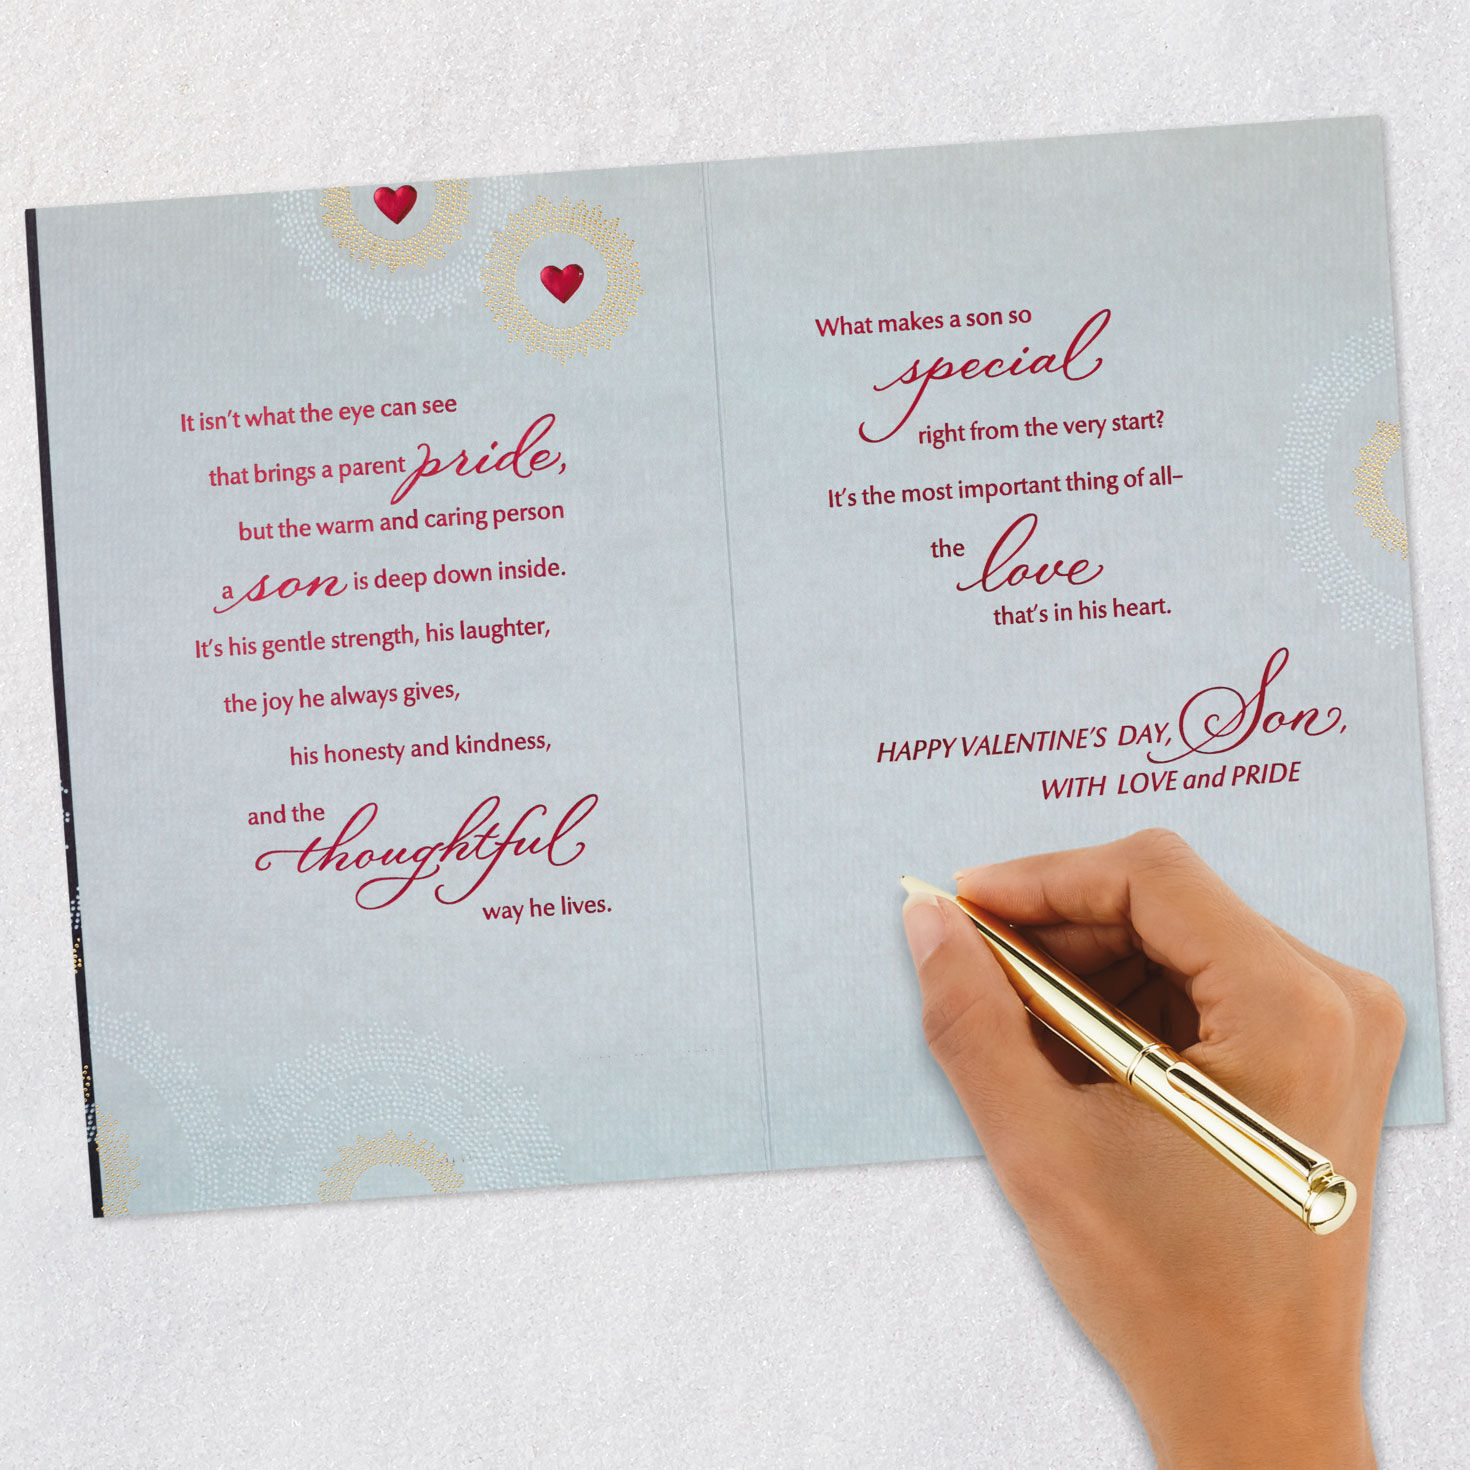 It isn't what the eye can see
that brings a parent pride,
but the warm and caring person
a son is deep down inside.
It's his gentle strength, his laughter,
the joy he always gives,
his honesty and kindness,
and the
thoughtful
way he lives.
What makes a son so
special
right from the very start?
It's the most important thing of all–
the love
that's in his heart.
HAPPY VALENTINE'S DAY, Son,
WITH LOVE and PRIDE